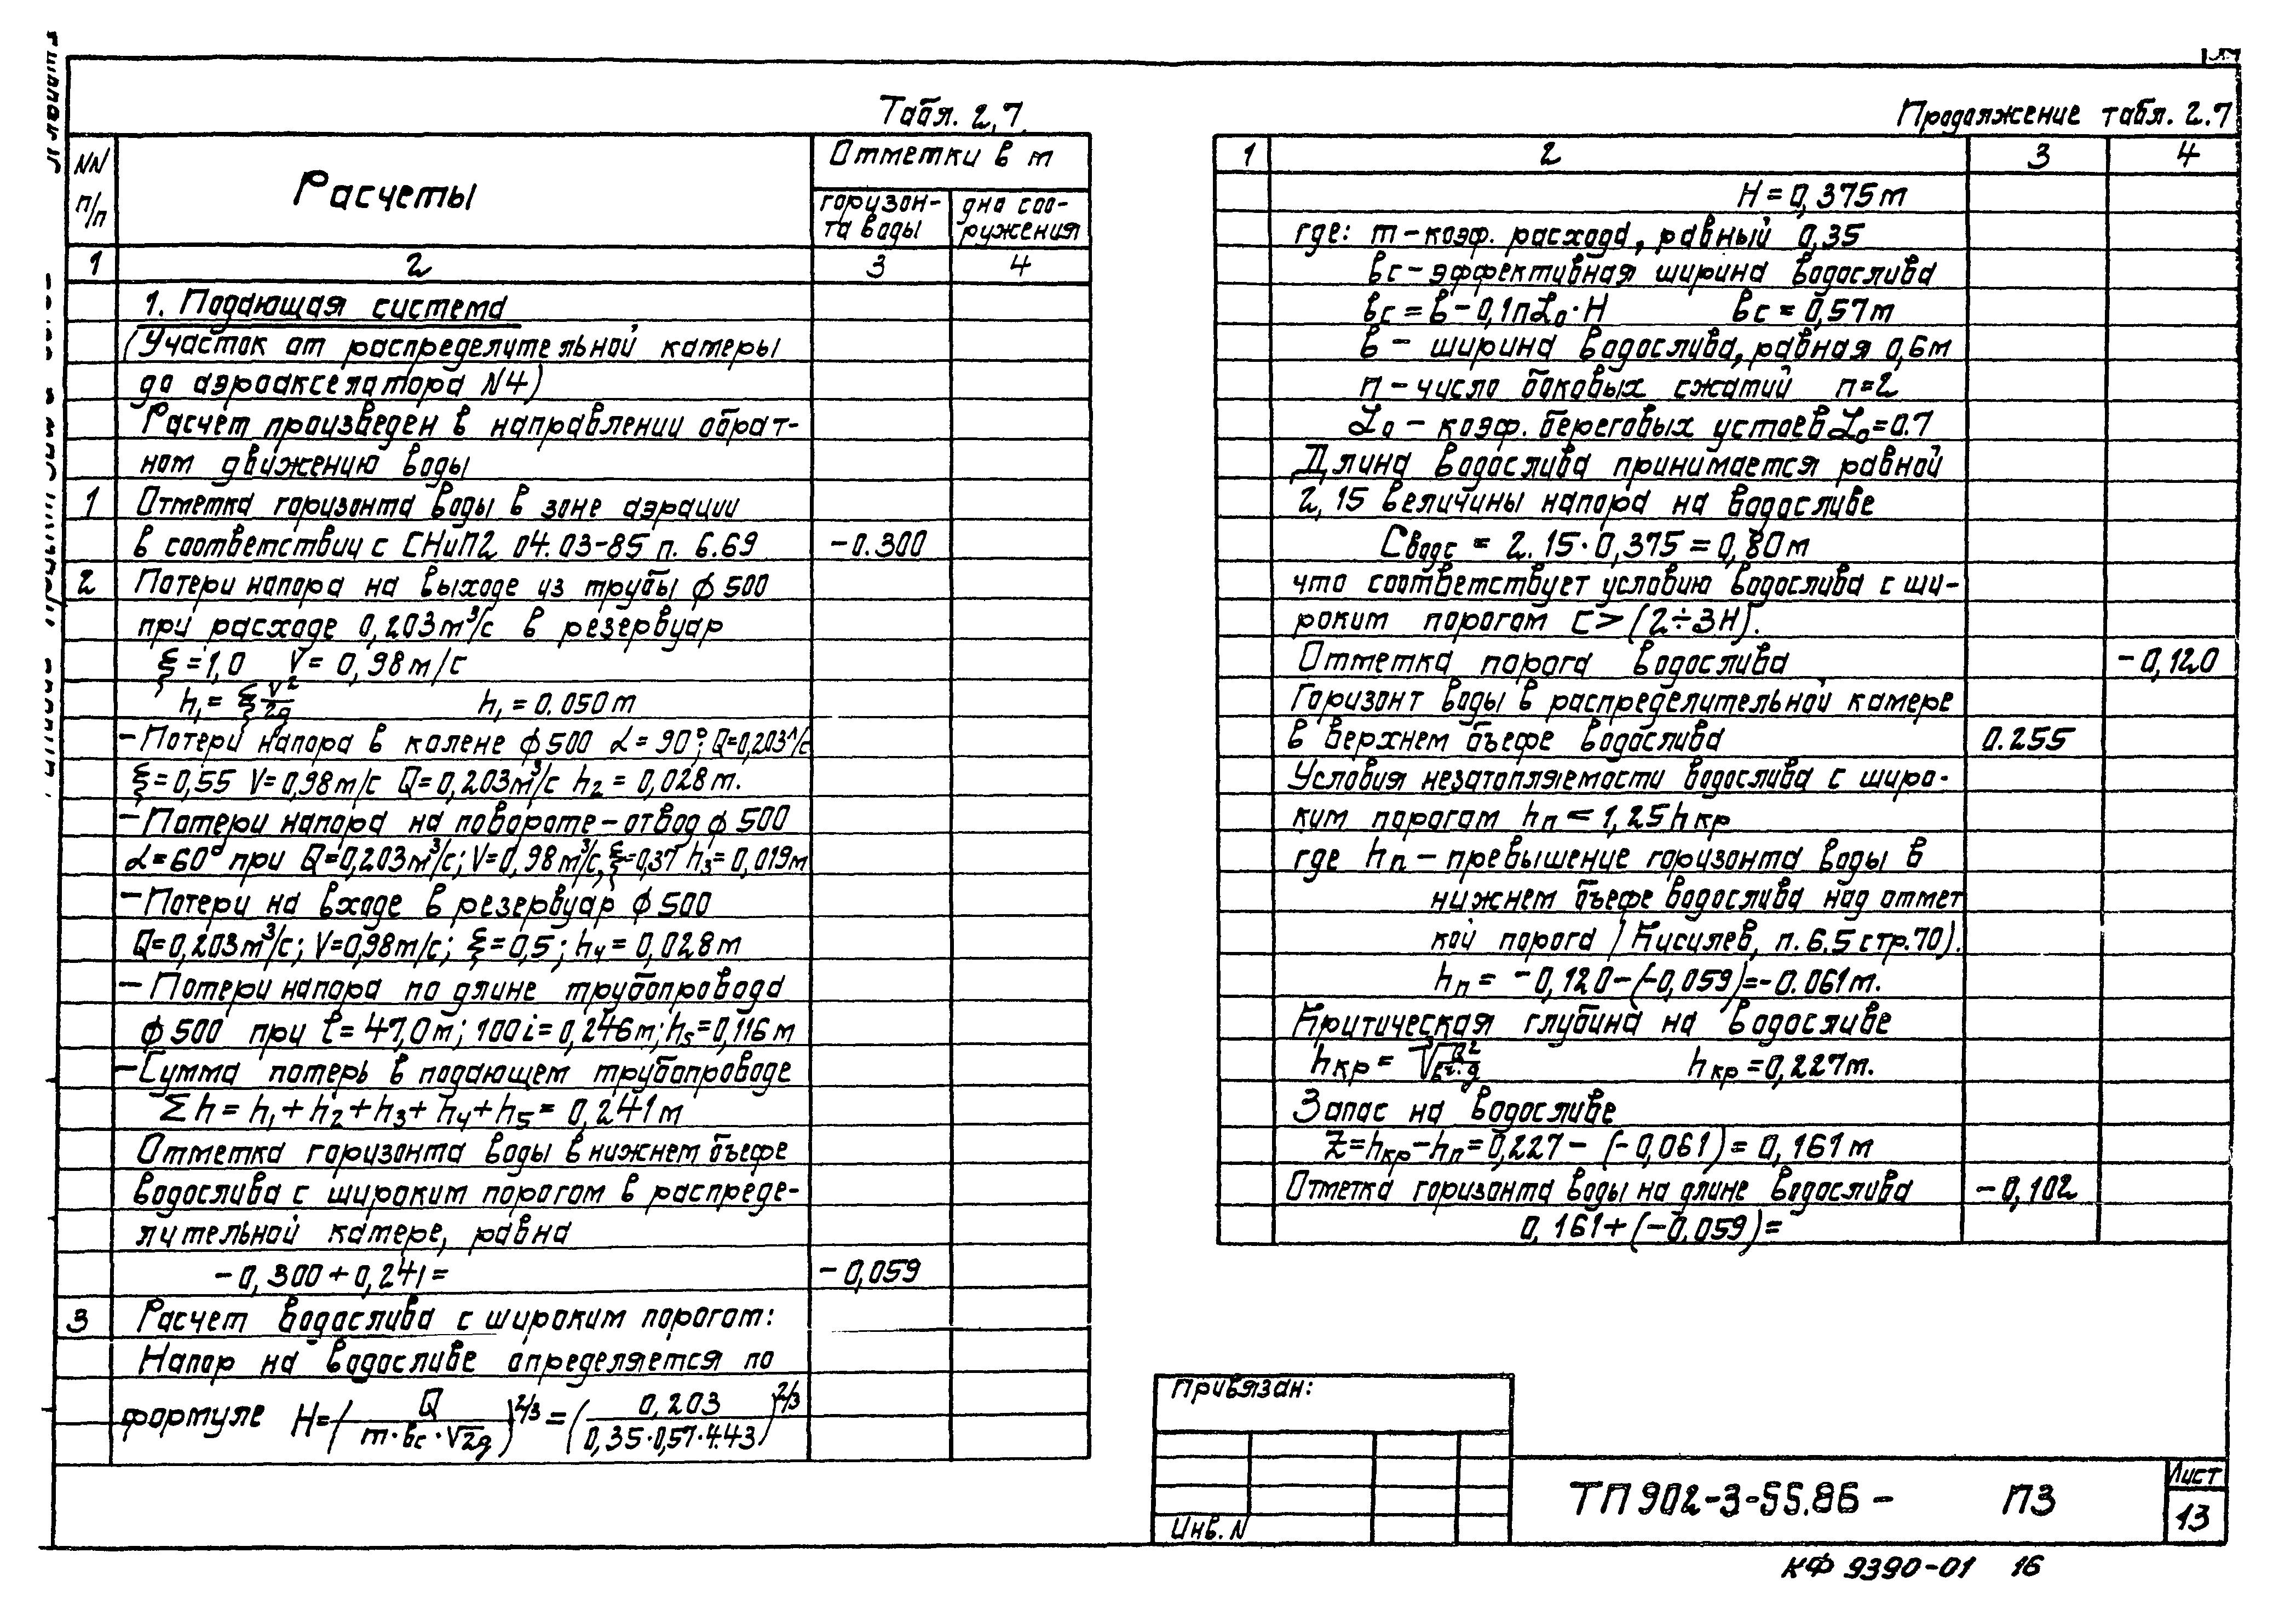 Табл. 2,7
NN п/п
Расчеты
Отметки в м
горизон-
та воды
дна соо-
ружения
1 2 3 4
1. Подающая система
(Участок от распределительной камеры
до аэроакселатора N4)
Расчет произведен в направлении обрат-
ном движению воды
1 Отметка горизонта воды в зоне аэрации
в соответствии с СНиП2 04.03-85 п. 6.69 -0.300
2 Потери напора на выходе из трубы ф 500
при расходе 0,203м³/с в резервуар
ξ=1,0 V= 0,98м/с
h₁= ξ V²/2g h₁=0.050м
-Потери напора в колене ф500 α=90°; Q=0,203
ξ=0,55 V=0,98м/с Q=0,203м³/с h₂= 0,028м.
-Потери напора на повороте-отвод ф 500
α=60° при Q=0,203м³/с; V=0,98м³/с, ξ=0,37 h₃=0,019м
-Потери на входе в резервуар ф500
Q=0,203м³/с; V=0,98м/с; ξ=0,5; h₄= 0,028м
- Потери напора по длине трубопровода
ф500 при ℓ=47,0м; 100i=0,246м; h₅=0,116м
-Сумма потерь в подающем трубопроводе
Σh= h₁+h₂+h₃+h₄+h₅= 0,241м
Отметка горизонта воды в нижнем бъефе
водослива с широким порогом в распреде-
лительной камере, равна
-0,300+0,241= -0,059
3 Расчет водослива с широким порогом:
Напор на водосливе определяется по
формуле H=(Q/(m·вс·√2g))^2/3=(0,203/(0,35·0,57·4.43))^2/3
Продолжение табл. 2.7
1 2 3 4
H=0,375м
где: m-коэф. расхода, равный 0,35
вс-эффективная ширина водослива
вс=в-0,1nα₀·H вс=0,57м
в - ширина водослива, равная 0,6м
n-число боковых сжатий n=2
α₀-коэф. береговых устоев α₀=0.7
Длина водослива принимается равной
2,15 величины напора на водосливе
Сводс = 2.15·0,375=0,80м
что соответствует условию водослива с ши-
роким порогом С>(2÷3H).
Отметка порога водослива -0,120
Горизонт воды в распределительной камере
в верхнем бъефе водослива 0.255
Условия незатопляемости водослива с широ-
ким порогом hп<1,25hкр
где hп-превышение горизонта воды в
нижнем бъефе водослива над отмет
кой порога (Кисилев, п.6.5 стр.70).
hп= -0,120-(-0,059)=-0.061м.
Критическая глубина на водосливе
hкр= hкр=0,227м.
Запас на водосливе
Z=hкр-hп=0,227-(-0,061)=0,161м
Отметка горизонта воды на длине водослива -0,102
0,161+(-0.059)=
Привязан:
Инв. N
ТП 902-3-55.86 - ПЗ
Лист
13
КФ 9390-01 16